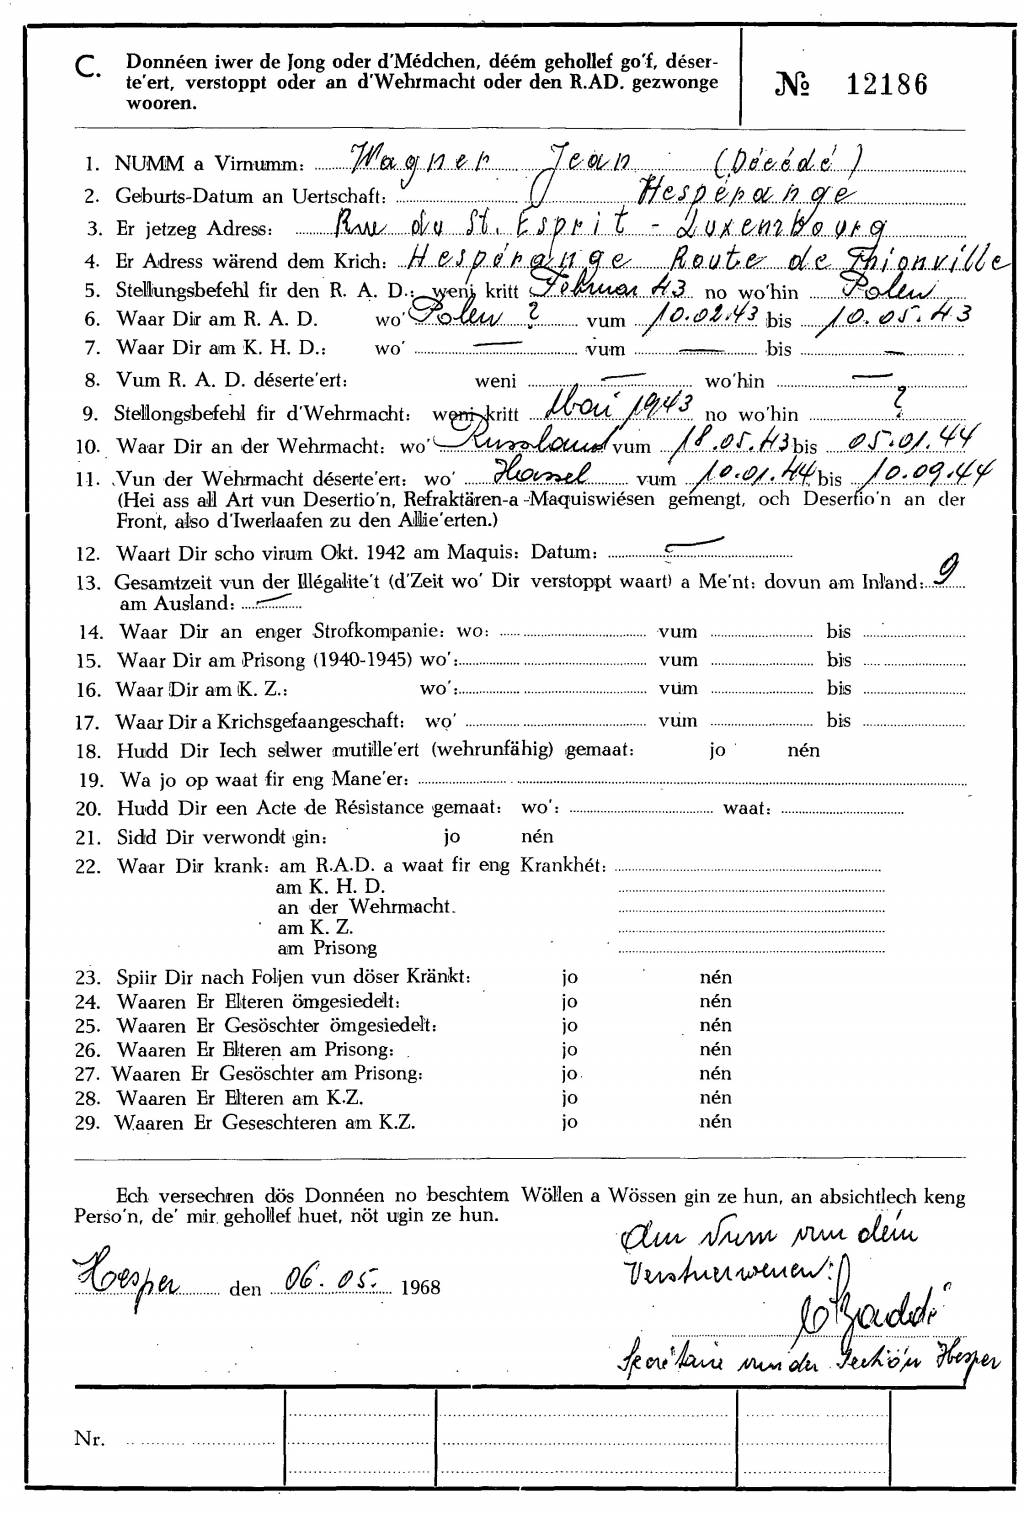 C. Donnéen iwer de Jong oder d'Médchen, déém gehollef go'f, déser-
te'ert, verstoppt oder an d'Wehrmacht oder den R.AD. gezwonge
wooren.
№ 12186
1. NUMM a Virnumm: Wagner Jean (Décédé)
2. Geburts-Datum an Uertschaft: Hespérange
3. Er jetzeg Adress: Rue du St. Esprit - Luxembourg
4. Er Adress wärend dem Krich: Hespérange Route de Thionville
5. Stellungsbefehl fir den R. A. D.: weni kritt Februar 43 no wo'hin Polen
6. Waar Dir am R. A. D. wo' Polen ? vum 10.02.43 bis 10.05.43
7. Waar Dir am K. H. D.: wo' — vum — bis —
8. Vum R. A. D. déserte'ert: weni — wo'hin —
9. Stellongsbefehl fir d'Wehrmacht: weni kritt Mai 1943 no wo'hin ?
10. Waar Dir an der Wehrmacht: wo' Russland vum 18.05.43 bis 05.01.44
11. Vun der Wehrmacht déserte'ert: wo' Hassel vum 10.01.44 bis 10.09.44
(Hei ass all Art vun Desertio'n, Refraktären-a -Maquiswiésen gemengt, och Desertio'n an der
Front, also d'Iwerlaafen zu den Allie'erten.)
12. Waart Dir scho virum Okt. 1942 am Maquis: Datum: —
13. Gesamtzeit vun der Illégalite't (d'Zeit wo' Dir verstoppt waart) a Me'nt: dovun am Inland: 9
am Ausland: —
14. Waar Dir an enger Strofkompanie: wo: vum bis
15. Waar Dir am Prisong (1940-1945) wo': vum bis
16. Waar Dir am K. Z.: wo': vum bis
17. Waar Dir a Krichsgefaangeschaft: wo' vum bis
18. Hudd Dir Iech selwer mutille'ert (wehrunfähig) gemaat: jo nén
19. Wa jo op waat fir eng Mane'er:
20. Hudd Dir een Acte de Résistance gemaat: wo': waat:
21. Sidd Dir verwondt gin: jo nén
22. Waar Dir krank: am R.A.D. a waat fir eng Krankhét:
am K. H. D.
an der Wehrmacht.
am K. Z.
am Prisong
23. Spiir Dir nach Foljen vun döser Kränkt: jo nén
24. Waaren Er Elteren ömgesiedelt: jo nén
25. Waaren Er Gesöschter ömgesiedelt: jo nén
26. Waaren Er Elteren am Prisong: jo nén
27. Waaren Er Gesöschter am Prisong: jo nén
28. Waaren Er Elteren am K.Z. jo nén
29. Waaren Er Geseschteren am K.Z. jo nén
Ech versechren dös Donnéen no beschtem Wöllen a Wössen gin ze hun, an absichtlech keng
Perso'n, de' mir gehollef huet, nöt ugin ze hun.
Am Num vun dém
Verstuerwenen:
Hesper den 06.05. 1968
Secrétaire vun der Sectio'n Hesper
Nr.